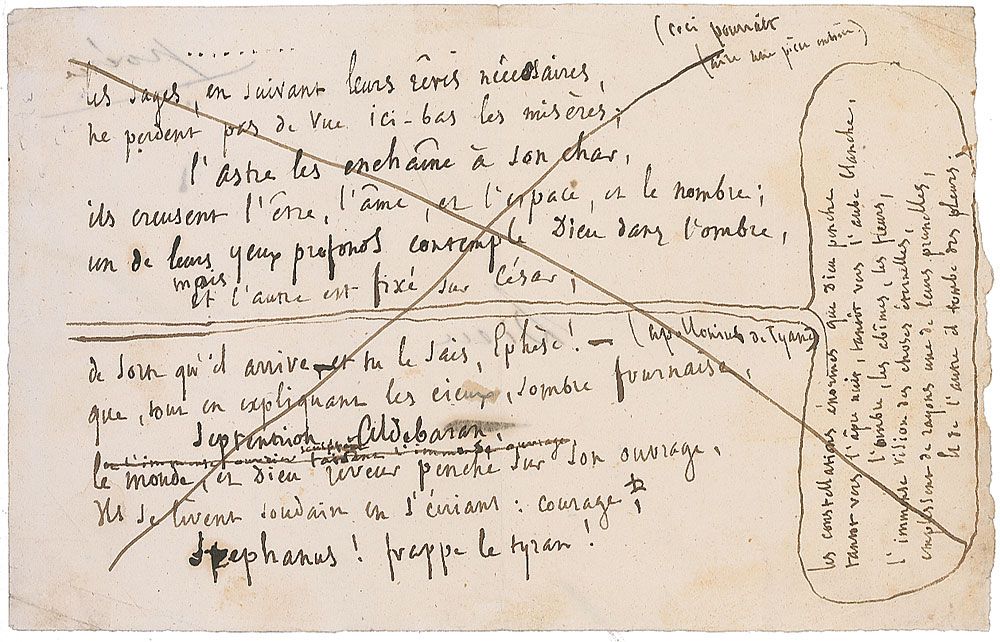 (ceci pourrait
faire une pièce entière)
les sages, en suivant leurs rêves nécessaires,
ne perdent pas de vue ici-bas les misères;
l'astre les enchaîne à son char,
ils creusent l'être, l'âme, et l'espace, et le nombre;
un de leurs yeux profonds contemple Dieu dans l'ombre,
mais
et l'autre est fixé sur César;
de sorte qu'il arrive, et tu le sais, Ephèse! — (Apollonius de Tyane)
que, tout en expliquant les cieux, sombre fournaise,
Septentrion, Aldebaran,
l'immense ouvrage,
le monde, et Dieu rêveur penché sur son ouvrage,
Ils se lèvent soudain en s'écriant: courage,
Stephanus! frappe le tyran!
les constellations énormes que Dieu penche
tantôt vers l'âpre nuit, tantôt vers l'aube blanche,
l'ombre, les abîmes, les fleurs,
l'immense vision des choses éternelles,
emplissent de rayons une de leurs prunelles,
et de l'autre il tombe des pleurs;